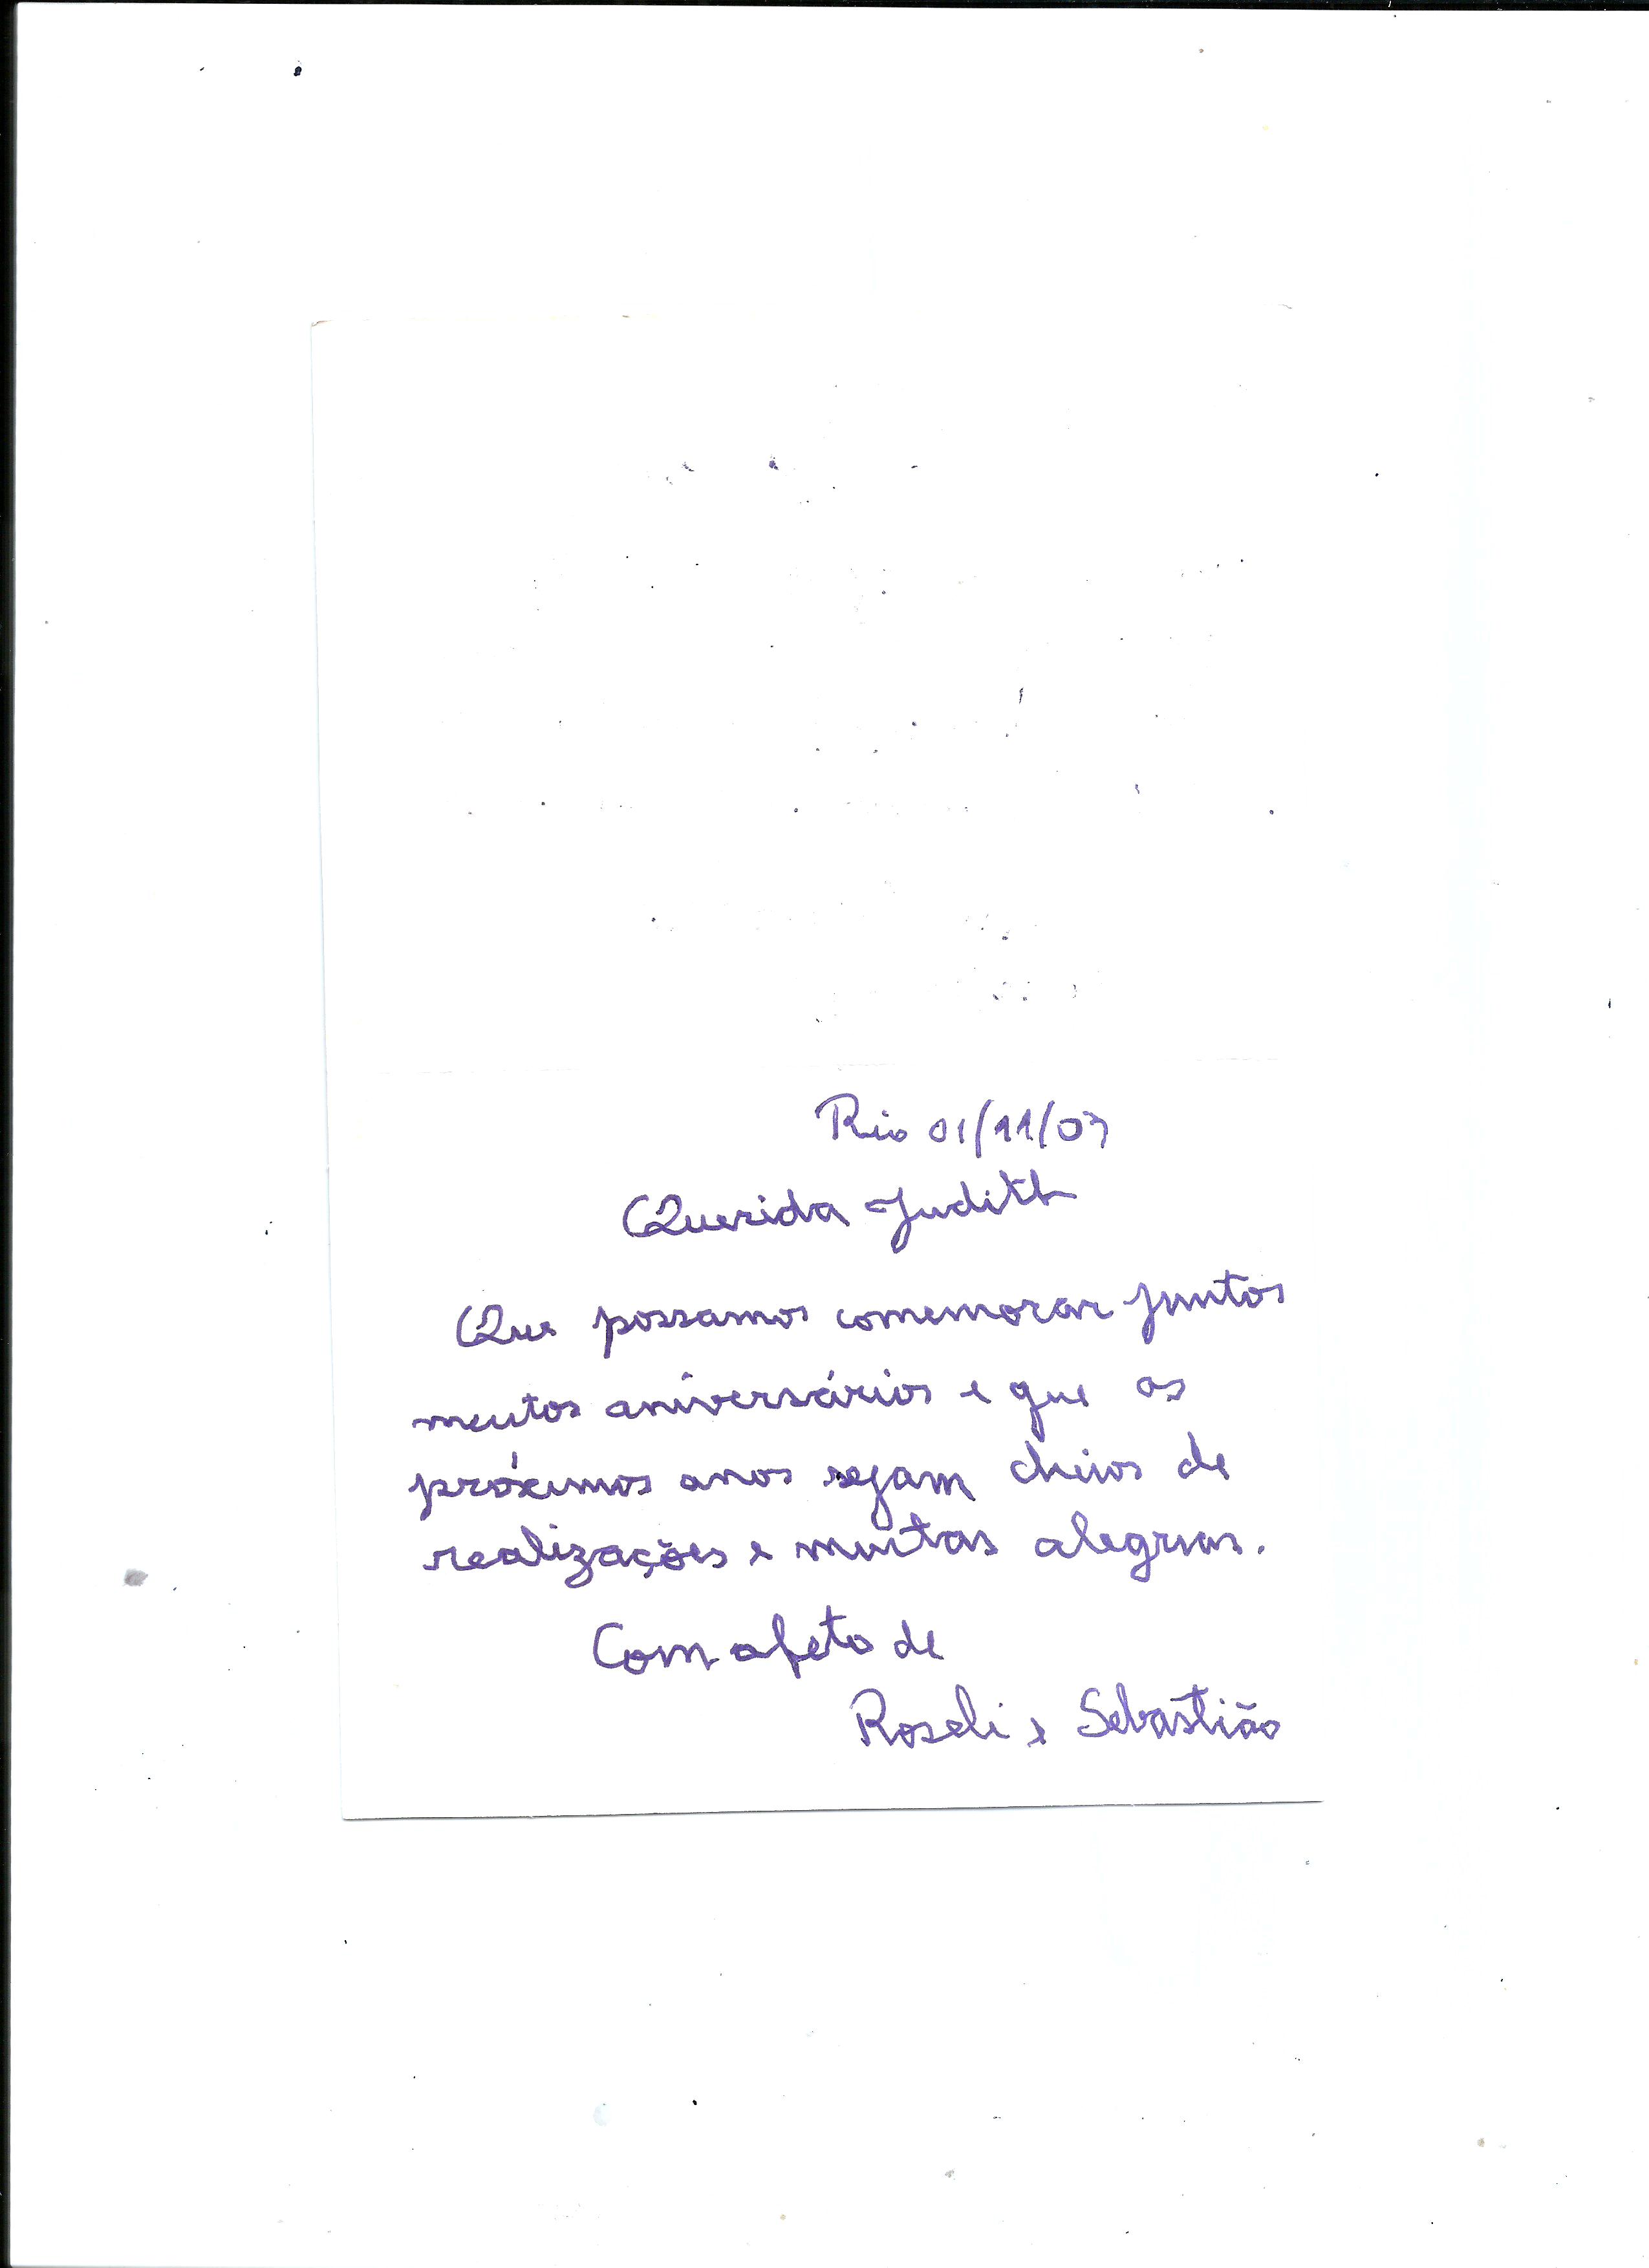 Rio 01/11/07
Querida Judith
Que possamos comemorar juntos
muitos aniversários e que os
próximos anos sejam cheios de
realizações e muitas alegrias.
Com afeto de
Roseli e Sebastião